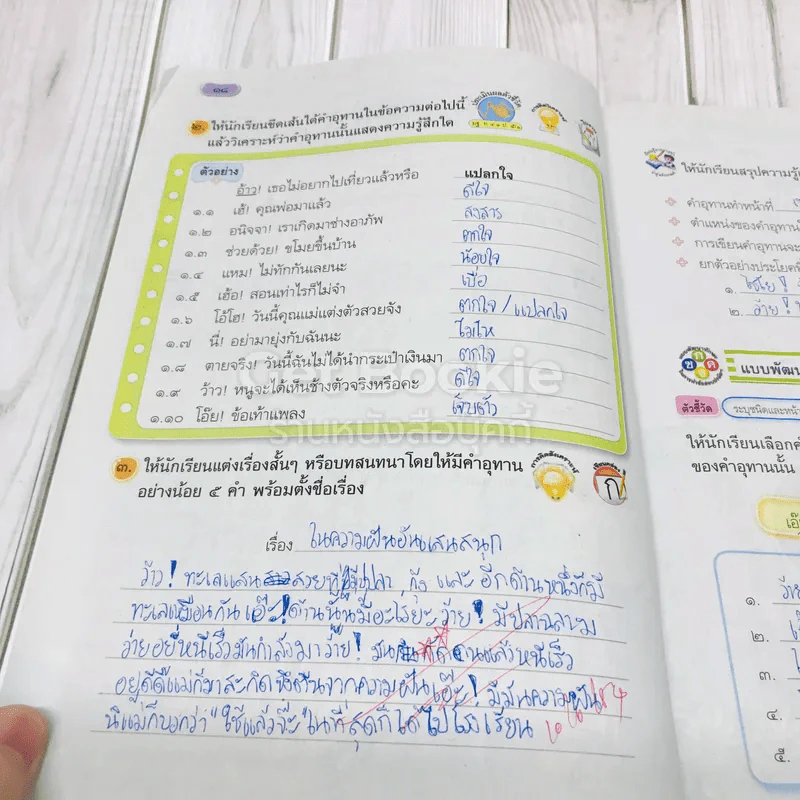 ๑๔
๒. ให้นักเรียนขีดเส้นใต้คำอุทานในข้อความต่อไปนี้
แล้ววิเคราะห์ว่าคำอุทานนั้นแสดงความรู้สึกใด
ตัวอย่าง
อ้าว! เธอไม่อยากไปเที่ยวแล้วหรือ แปลกใจ
๑.๑ เฮ้! คุณพ่อมาแล้ว ดีใจ
๑.๒ อนิจจา! เราเกิดมาช่างอาภัพ สงสาร
๑.๓ ช่วยด้วย! ขโมยขึ้นบ้าน ตกใจ
๑.๔ แหม! ไม่ทักกันเลยนะ น้อยใจ
๑.๕ เฮ้อ! สอนเท่าไรก็ไม่จำ เบื่อ
๑.๖ โอ้โฮ! วันนี้คุณแม่แต่งตัวสวยจัง ตกใจ/แปลกใจ
๑.๗ นี่! อย่ามายุ่งกับฉันนะ โมโห
๑.๘ ตายจริง! วันนี้ฉันไม่ได้นำกระเป๋าเงินมา ตกใจ
๑.๙ ว้าว! หนูจะได้เห็นช้างตัวจริงหรือคะ ดีใจ
๑.๑๐ โอ๊ย! ข้อเท้าแพลง เจ็บตัว
Bookie
ร้านหนังสือบุคกี้
๓. ให้นักเรียนแต่งเรื่องสั้นๆ หรือบทสนทนาโดยให้มีคำอุทาน
อย่างน้อย ๕ คำ พร้อมตั้งชื่อเรื่อง
เรื่อง ในความฝันอันแสนสนุก
ว้าว! ทะเลแสน สวย กุ้ง และ อีกด้านหนึ่งก็มี
ทะเลเหมือนกันเอ๊ะ! ด้านนั้นมีอะไรยะ ว้าย! มีปลาฉลาม
ว่ายอยู่หนีเร็วมันกำลังมาว้าย! แล้วหนีเร็ว
อยู่ดีดีแม่ก็มาสะกิดจึงตื่นจากความฝันเอ๊ะ! มีมันความฝัน
นิแม่ก็บอกว่า"ใช่แล้วจ๊ะ"ในที่สุดก็ได้ไปโรงเรียน
ให้นักเรียนสรุปความรู้
คำอุทานทำหน้าที่
ตำแหน่งของคำอุทาน
การเขียนคำอุทานจะ
ยกตัวอย่างประโยค
๑. ไชโย!
๒. ว้าย!
แบบพัฒน
ตัวชี้วัด ระบุชนิดและหน้า
ให้นักเรียนเลือกคำ
ของคำอุทานนั้น
๑.
๒.
๓.
๔.
๕.